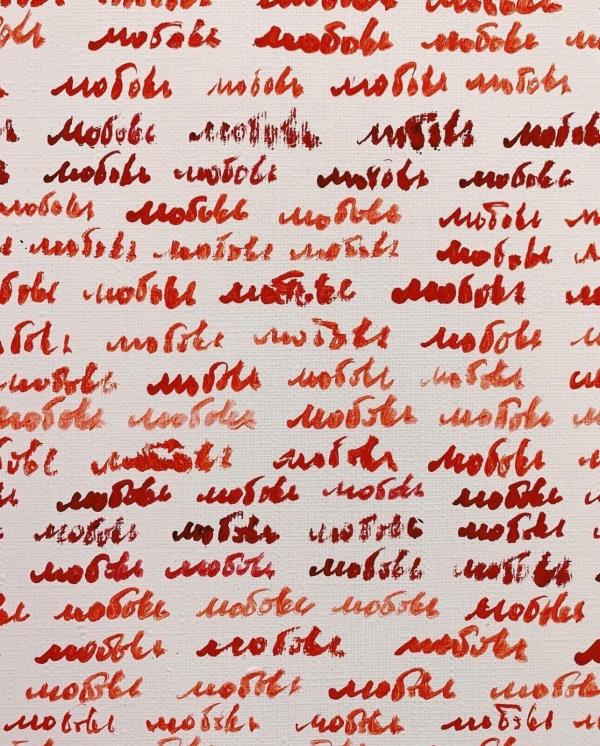 любовь любовь любовь
любовь любовь любовь любовь
любовь любовь любовь любовь
любовь любовь любовь любовь
любовь любовь любовь любовь
любовь любовь любовь любовь
любовь любовь любовь любовь
любовь любовь любовь любовь
любовь любовь любовь
любовь любовь любовь любовь
любовь любовь любовь любовь
любовь любовь любовь
любовь любовь любовь любовь
любовь любовь любовь любовь
любовь любовь любовь любовь
любовь любовь любовь любовь
любовь любовь любовь
любовь любовь любовь любовь
любовь любовь любовь любовь